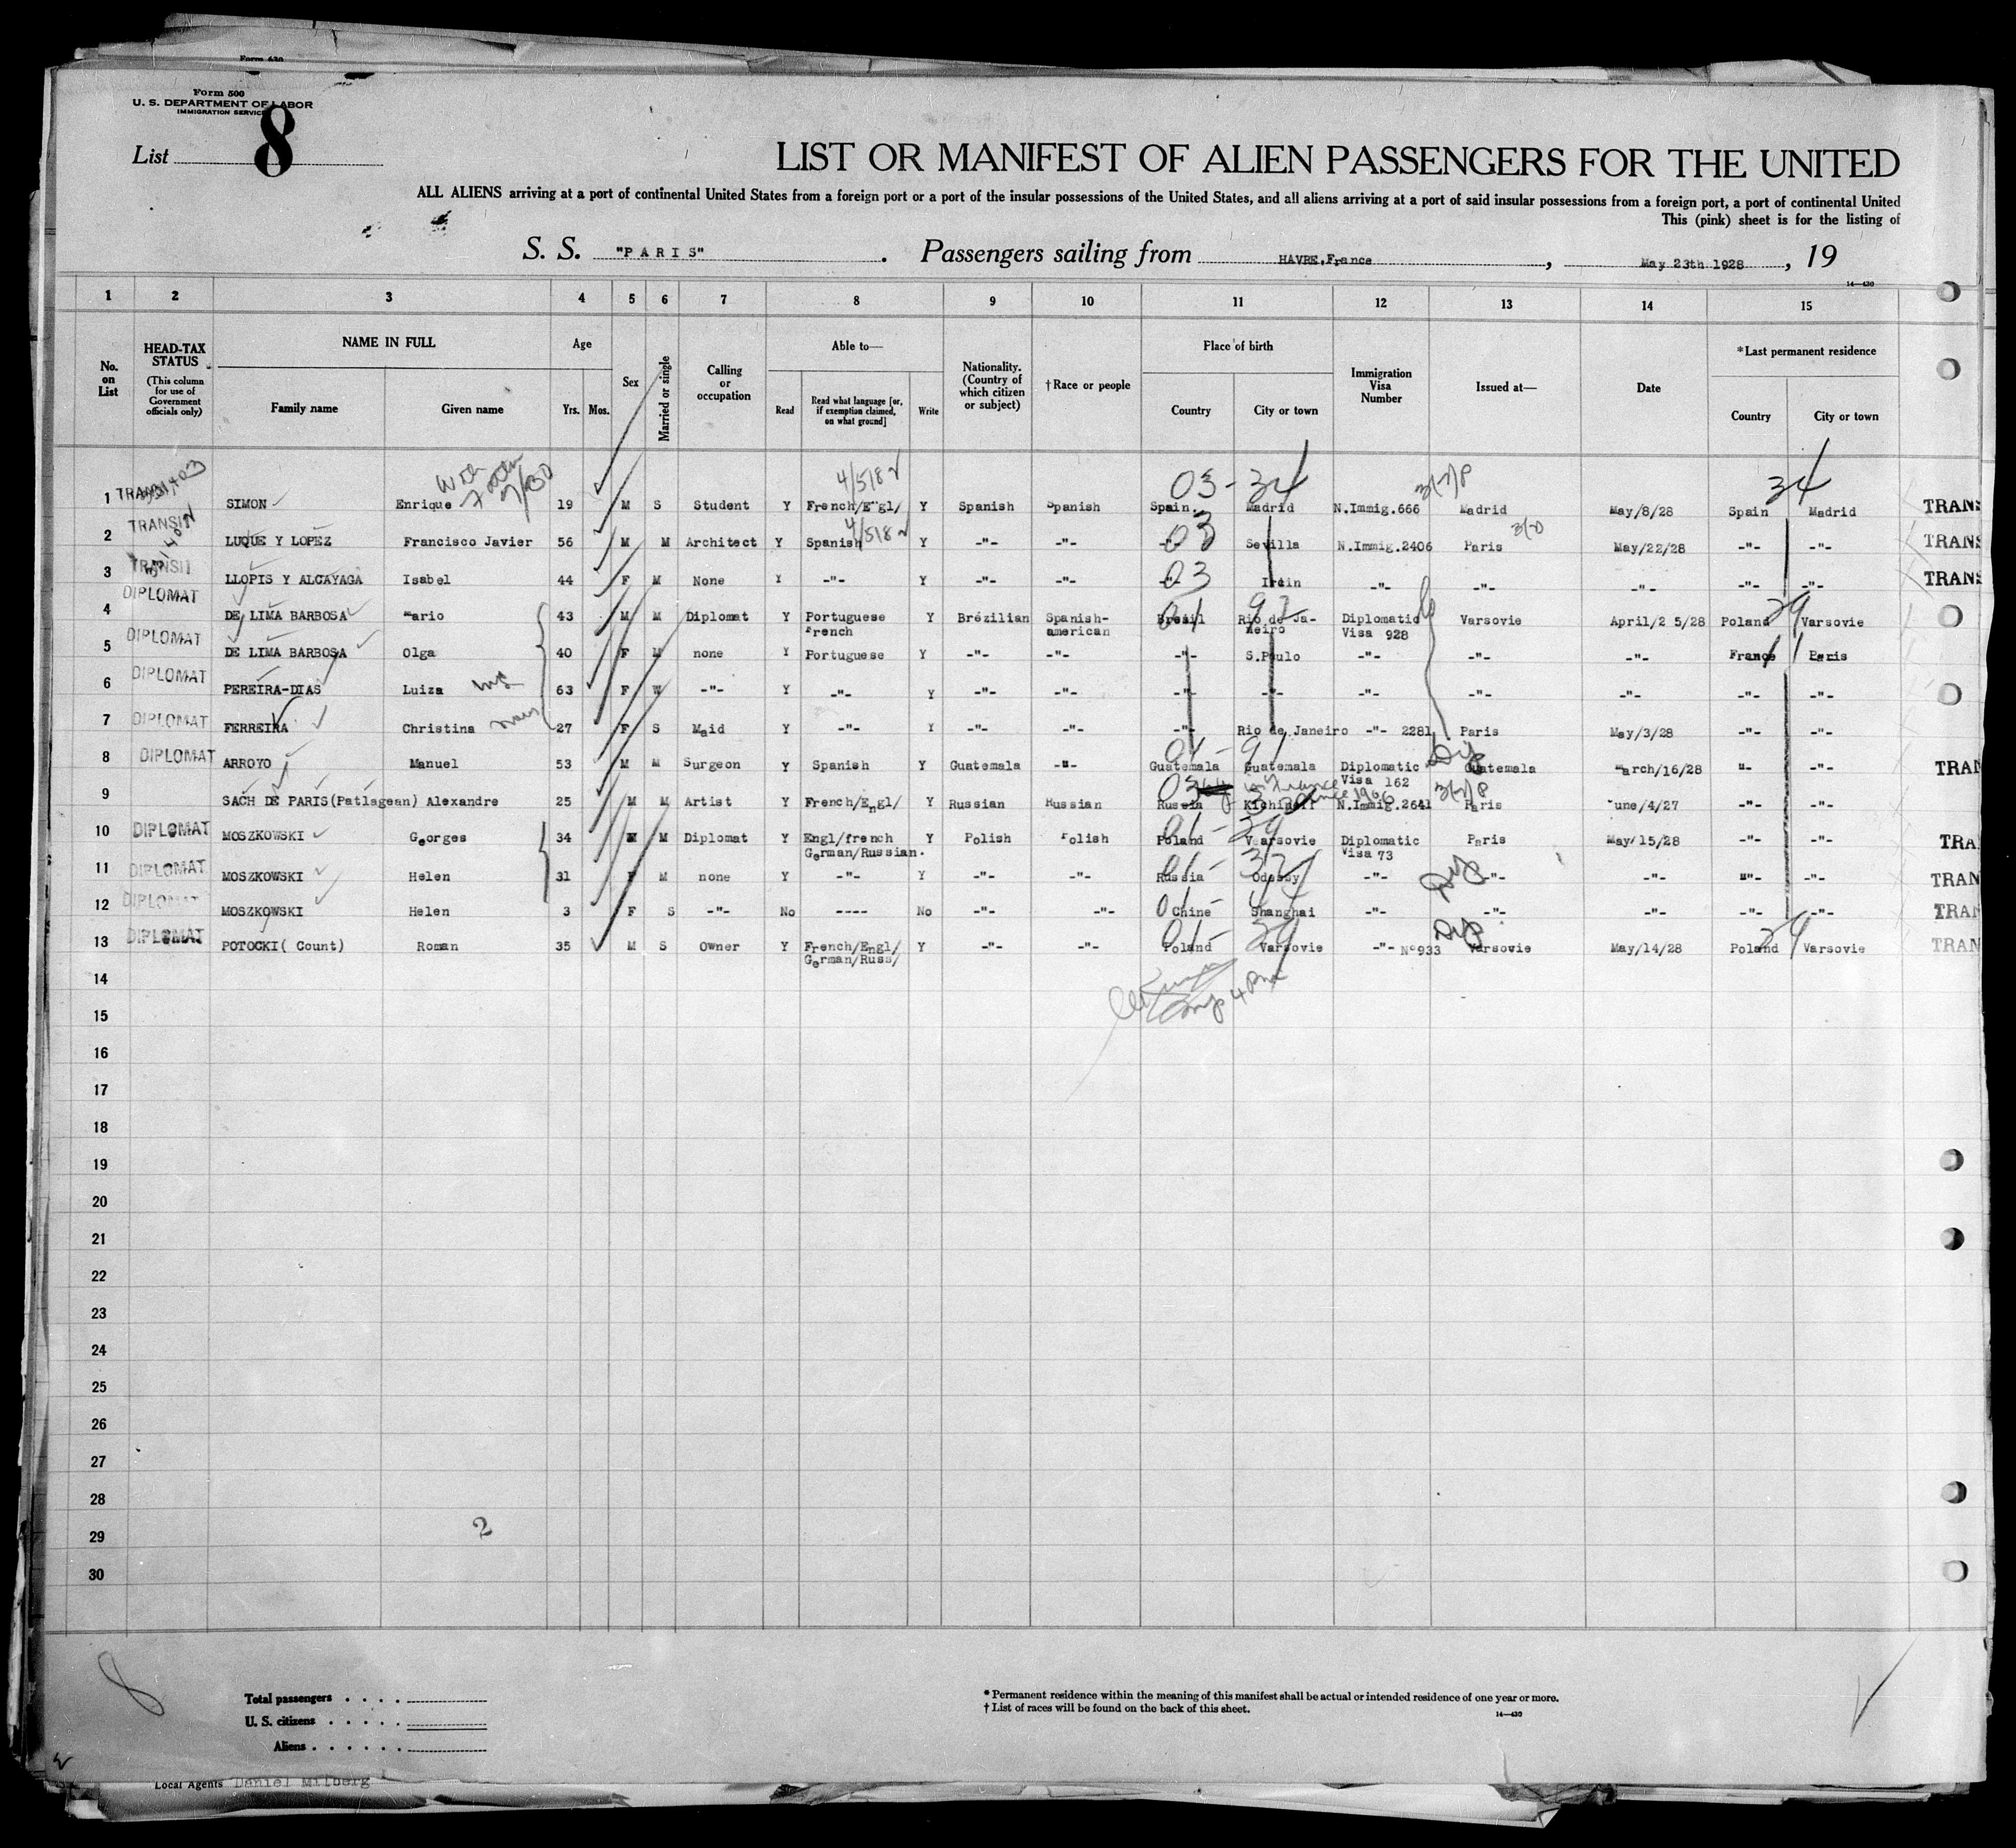 Form 630
Form 500
U. S. DEPARTMENT OF LABOR
IMMIGRATION SERVICE
List 8
LIST OR MANIFEST OF ALIEN PASSENGERS FOR THE UNITED
ALL ALIENS arriving at a port of continental United States from a foreign port or a port of the insular possessions of the United States, and all aliens arriving at a port of said insular possessions from a foreign port, a port of continental United
This (pink) sheet is for the listing of
S. S. "PARIS" . Passengers sailing from HAVRE,France , May 23th 1928 , 19
14—430
1 2 3 4 5 6 7 8 9 10 11 12 13 14 15
No. on List
HEAD-TAX STATUS (This column for use of Government officials only)
NAME IN FULL Family name Given name
Age Yrs. Mos.
Sex
Married or single
Calling or occupation
Able to— Read Read what language [or, if exemption claimed, on what ground] Write
Nationality. (Country of which citizen or subject)
†Race or people
Place of birth Country City or town
Immigration Visa Number
Issued at—
Date
*Last permanent residence Country City or town
4/5/8
03 - 34 34
1 TRANSIT SIMON Enrique 19 M S Student Y French/Engl/ Y Spanish Spanish Spain. Madrid N.Immig.666 Madrid May/8/28 Spain Madrid TRANS
2 TRANSIT LUQUE Y LOPEZ Francisco Javier 56 M M Architect Y Spanish Y -"- -"- -"- 03 Sevilla N.Immig.2406 Paris May/22/28 -"- -"- TRANS
3 TRANSIT LLOPIS Y ALCAYAGA Isabel 44 F M None Y -"- Y -"- -"- -"- 03 Irein -"- -"- -"- -"- -"- TRANS
4 DIPLOMAT DE LIMA BARBOSA Mario 43 M M Diplomat Y Portuguese French Y Brézilian Spanish-american Brésil Rio de Janeiro Diplomatic Visa 928 Varsovie April/2 5/28 Poland Varsovie
5 DIPLOMAT DE LIMA BARBOSA Olga 40 F M none Y Portuguese Y -"- -"- -"- S.Paulo -"- -"- -"- France Paris
6 DIPLOMAT PEREIRA-DIAS Luiza 63 F W -"- Y -"- Y -"- -"- -"- -"- -"- -"- -"- -"- -"-
7 DIPLOMAT FERREIRA Christina 27 F S Maid Y -"- Y -"- -"- -"- Rio de Janeiro -"- 2281 Paris May/3/28 -"- -"-
8 DIPLOMAT ARROYO Manuel 53 M M Surgeon Y Spanish Y Guatemala -"- Guatemala Guatemala Diplomatic Visa 162 Guatemala March/16/28 "- -"- TRAN
9 SACH DE PARIS(Patlagean) Alexandre 25 M M Artist Y French/Engl/ Y Russian Russian Russia Kichineff N.Immig.2641 Paris June/4/27 -"- -"-
10 DIPLOMAT MOSZKOWSKI Georges 34 M M Diplomat Y Engl/french German/Russian. Y Polish Polish Poland Varsovie Diplomatic Visa 73 Paris May/15/28 -"- -"- TRA
11 DIPLOMAT MOSZKOWSKI Helen 31 F M none Y -"- Y -"- -"- Russia Odessy -"- -"- -"- "- -"- TRAN
12 DIPLOMAT MOSZKOWSKI Helen 3 F S -"- No ---- No -"- -"- Chine Shanghai -"- -"- -"- -"- -"- TRAN
13 DIPLOMAT POTOCKI( Count) Roman 35 M S Owner Y French/Engl/ German/Russ/ Y -"- -"- Poland Varsovie -"- N°933 Varsovie May/14/28 Poland Varsovie TRAN
14
15
16
17
18
19
20
21
22
23
24
25
26
27
28
29
30
2
8
Total passengers . . . .
U. S. citizens . . . . .
Aliens . . . . . .
*Permanent residence within the meaning of this manifest shall be actual or intended residence of one year or more.
†List of races will be found on the back of this sheet.
14—430
Local Agents Daniel Milberg